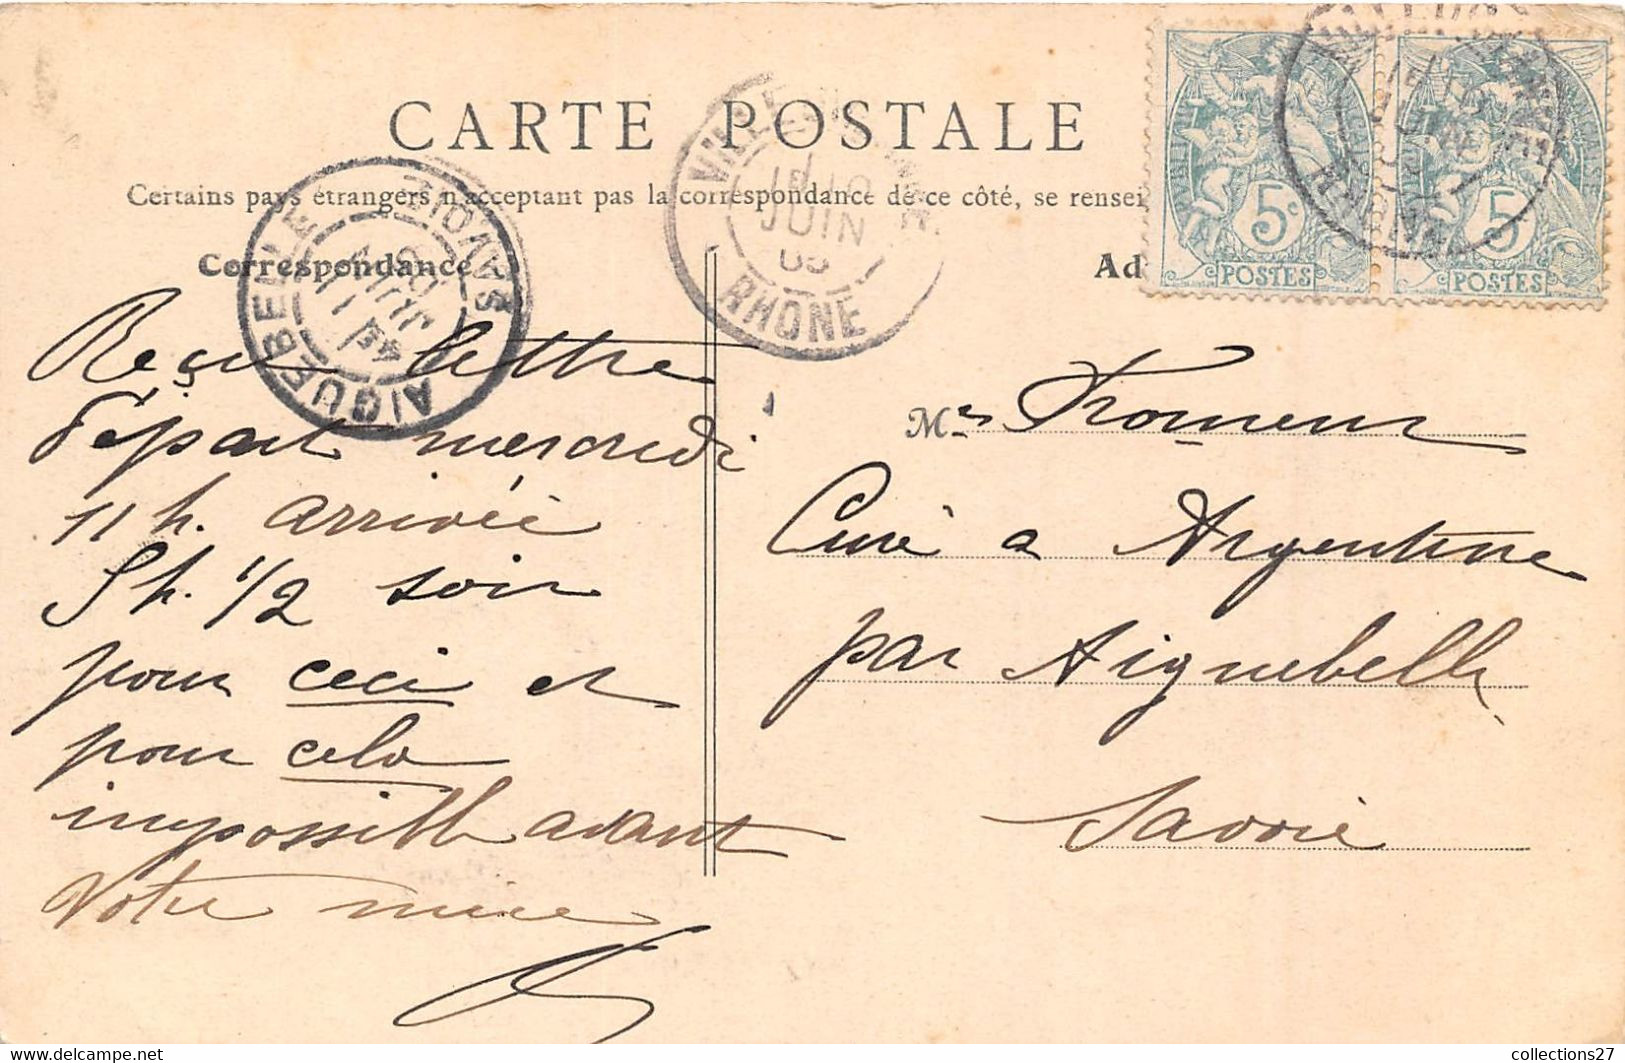 CARTE POSTALE
Certains pays étrangers n'acceptant pas la correspondance de ce côté, se rensei
Correspondance
Ad
AIGUEBELLE SAVOIE
VILLE
JUIN
RHONE
5c
POSTES
5
POSTES
Reçu lettre
départ mercredi
11 h. arrivée
5 h. 1/2 soir
pour ceci et
pour cela
impossible avant
Votre
Mr
Curé a Argentine
par Aiguebelle
Savoie
collections27